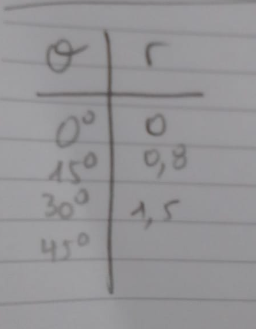 θ r
0° 0
15° 0,8
30° 1,5
45°